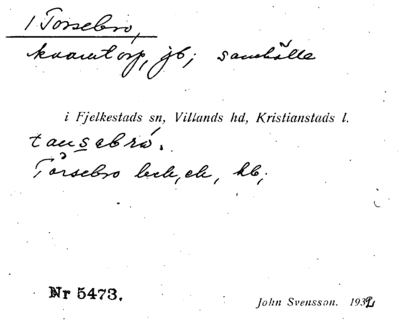 1 Torsebro,
kvarntorp, jb; samhälle
i Fjelkestads sn, Villands hd, Kristianstads l.
tausebro.
Torsebro hk;
Nr 5473.
John Svensson. 1932